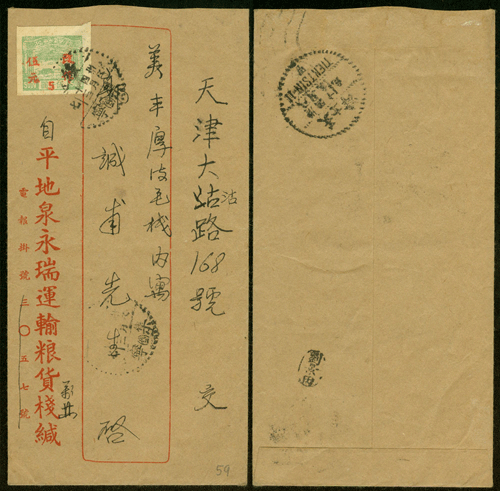 天津大沽路168號 交
沽
美丰厚皮毛棧内寓
誠甫先生 啓
自平地泉永瑞運輸粮貨棧緘
電報掛號三〇五七號
伍元
5
TIENTSIN
59